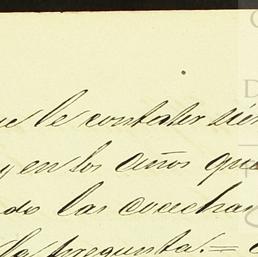 ue le contester sien
y en los años que
do las cosechas
la pregunta. =